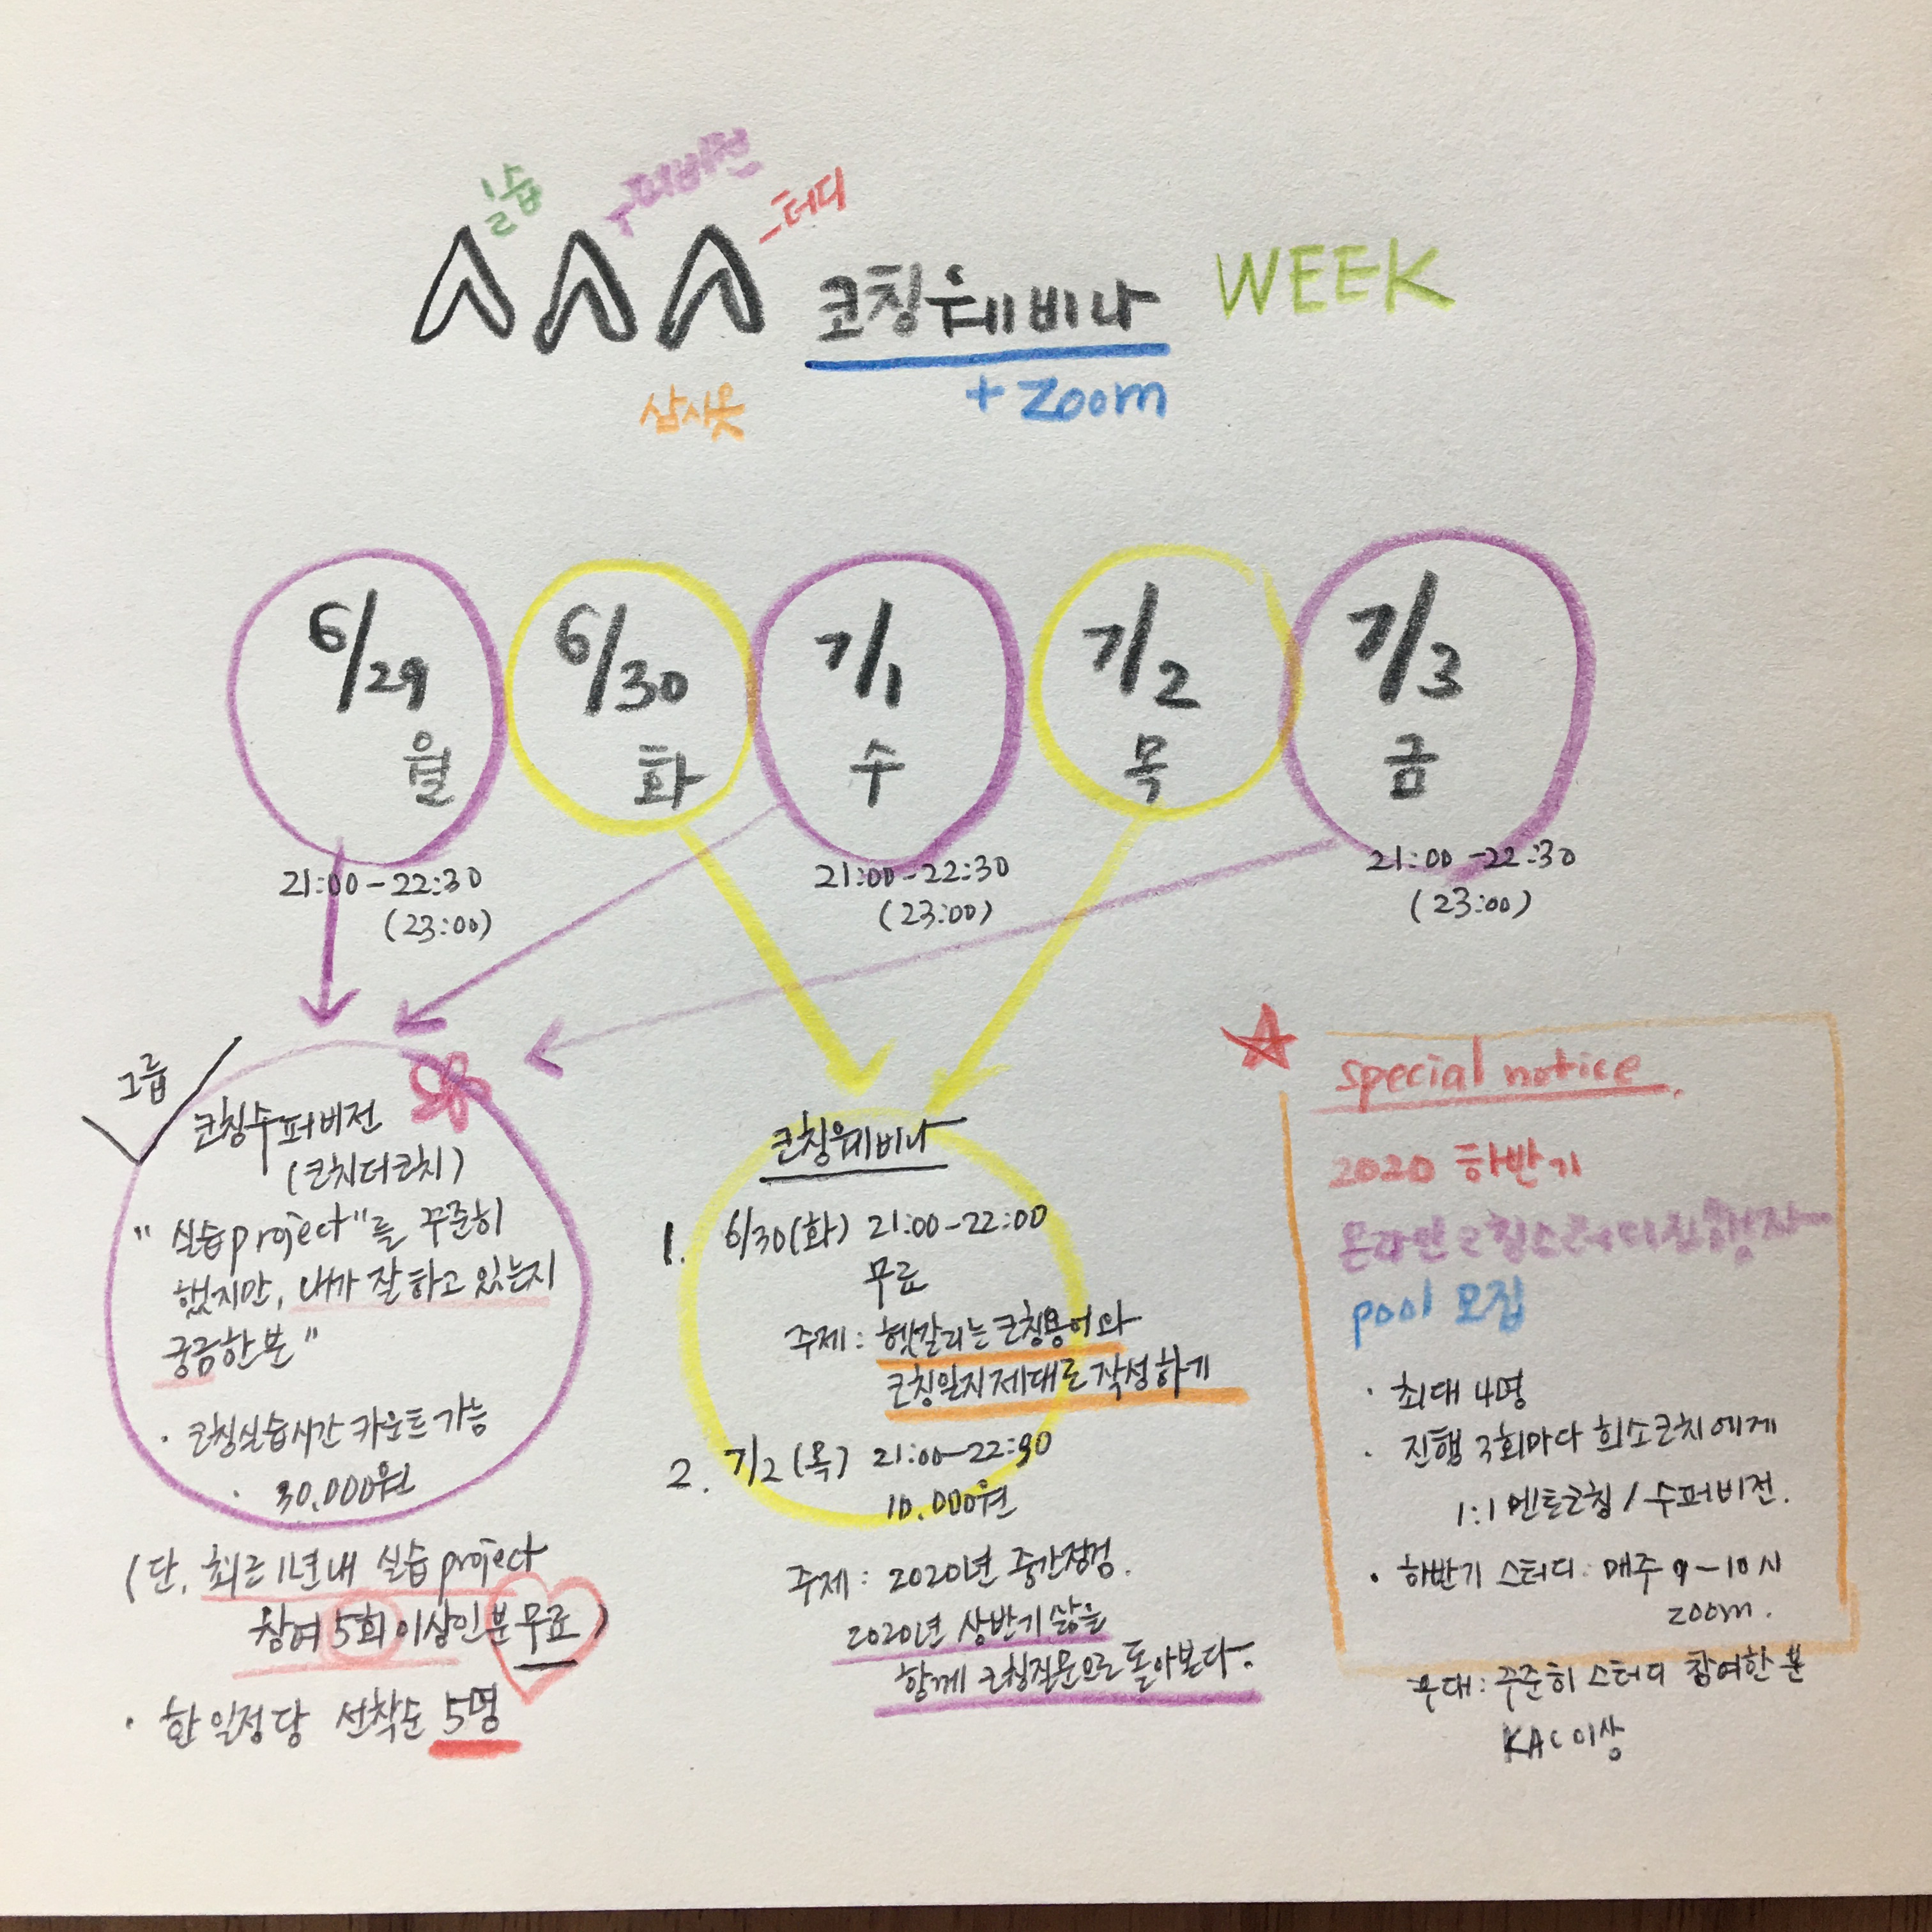 실습
수퍼비전
스터디
ㅅㅅㅅ 코칭웨비나 WEEK
삼시옷
+ zoom
6/29 월
6/30 화
7/1 수
7/2 목
7/3 금
21:00-22:30
(23:00)
21:00-22:30
(23:00)
21:00-22:30
(23:00)
그룹
코칭수퍼비전
(코치더코치)
"실습project"를 꾸준히
했지만, 내가 잘하고 있는지
궁금한 분"
· 코칭실습시간 카운트 가능
· 30.000원
(단, 최근 1년내 실습 project
참여 5회 이상인 분 무료)
· 한 일정당 선착순 5명
코칭웨비나
1. 6/30(화) 21:00-22:00
무료
주제: 헷갈리는 코칭용어와
코칭일지 제대로 작성하기
2. 7/2(목) 21:00-22:30
10.000원
주제: 2020년 중간점검.
2020년 상반기 삶을
함께 코칭질문으로 돌아본다.
special notice.
2020 하반기
온라인 코칭스터디진행자
pool 모집
· 최대 4명
· 진행 3회마다 희소코치에게
1:1 멘토코칭 / 수퍼비전.
· 하반기 스터디: 매주 9-10시
zoom.
우대: 꾸준히 스터디 참여한 분
KAC 이상